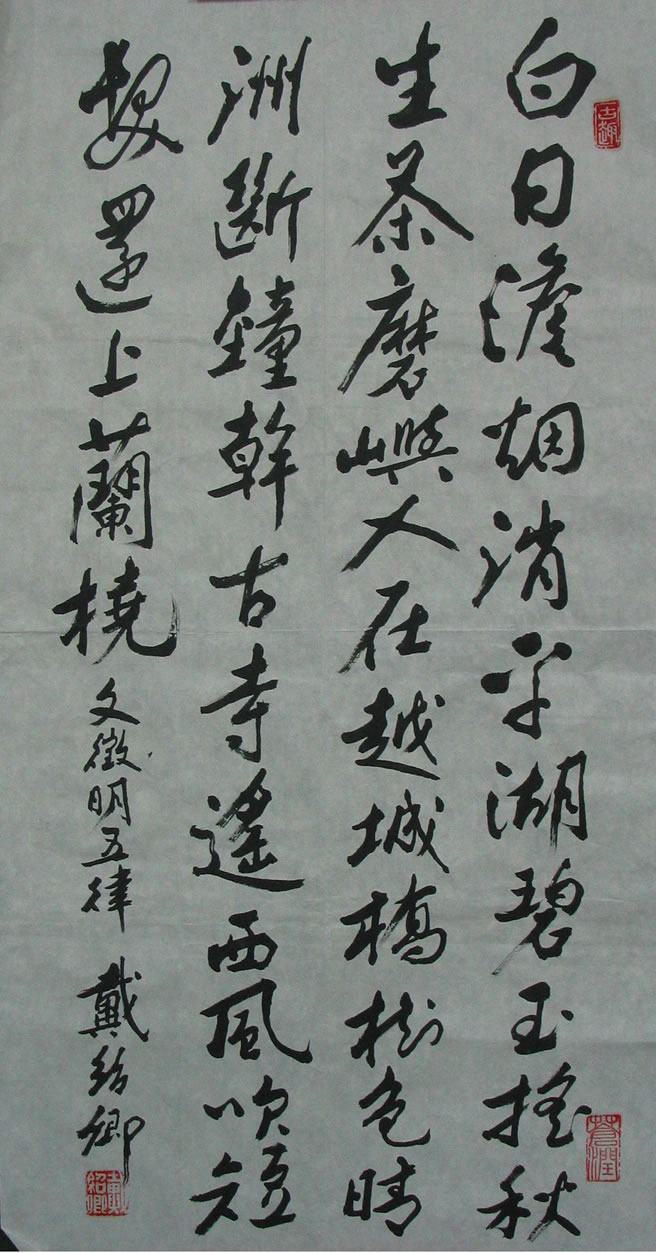 白日澹烟消平湖碧玉搖秋
生茶磨嶼人在越城橋樹色晴
洲斷鐘幹古寺遙西風吹短
髮還上蘭橈
文徵明五律 戴紹卿
古趣
蒼潤
戴紹卿